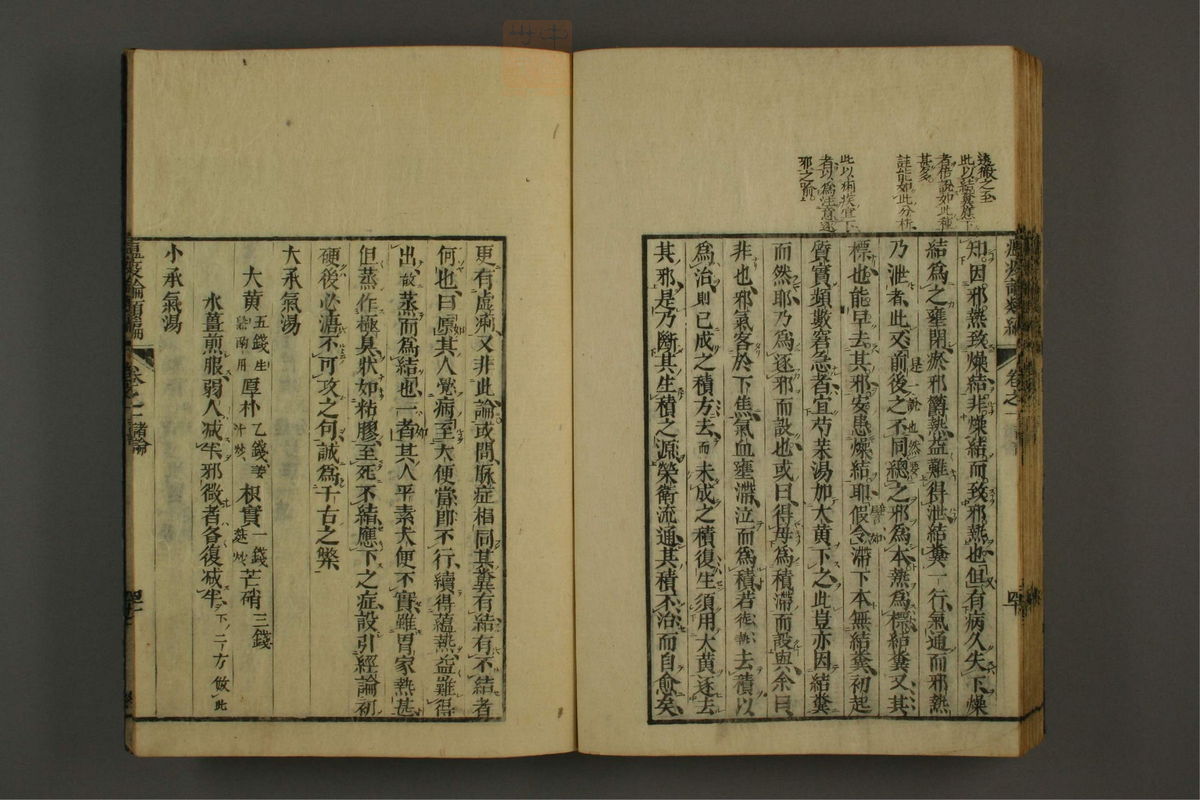 透徹之至
此以結糞應下
者借說如此種
甚多
註能如此分析
此以痢疾宜下
者以為注意逐
邪之喻
知因邪熱致燥結非燥結而致邪熱也但有病久失下燥
結為之壅閉瘀邪欝熱益難得泄結糞一行氣通而邪熱
乃泄者此又前後之不同總之邪為本熱為標結糞又其
標也能早去其邪安患燥結耶假令滯下本無結糞初起
質實頻數窘急者宜芍藥湯加大黃下之此豈亦因結糞
而然耶乃為逐邪而設也或曰得毋為積滯而設與余曰
非也邪氣客於下焦氣血壅滯泣而為積若去積以
為治則已成之積方去而未成之積復生須用大黃逐去
其邪是乃斷其生積之源榮衛流通其積不治而自愈矣
更有虛痢又非此論或問脉症相同其糞有結有不結者
何也曰原其人病至大便當即不行續得蘊熱益難得
出蒸而為結也一者其人平素大便不實雖胃家熱甚
但蒸作極臭狀如粘膠至死不結應下之症設引經論初
硬後必溏不可攻之句誠為千古之弊
大承氣湯
大黄 五錢 厚朴 乙錢 姜汁炒 枳實 一錢 芒硝 三錢
水薑煎服弱人减半邪微者各復减半 下ノ二方倣此
小承氣湯
卷之一 諸論